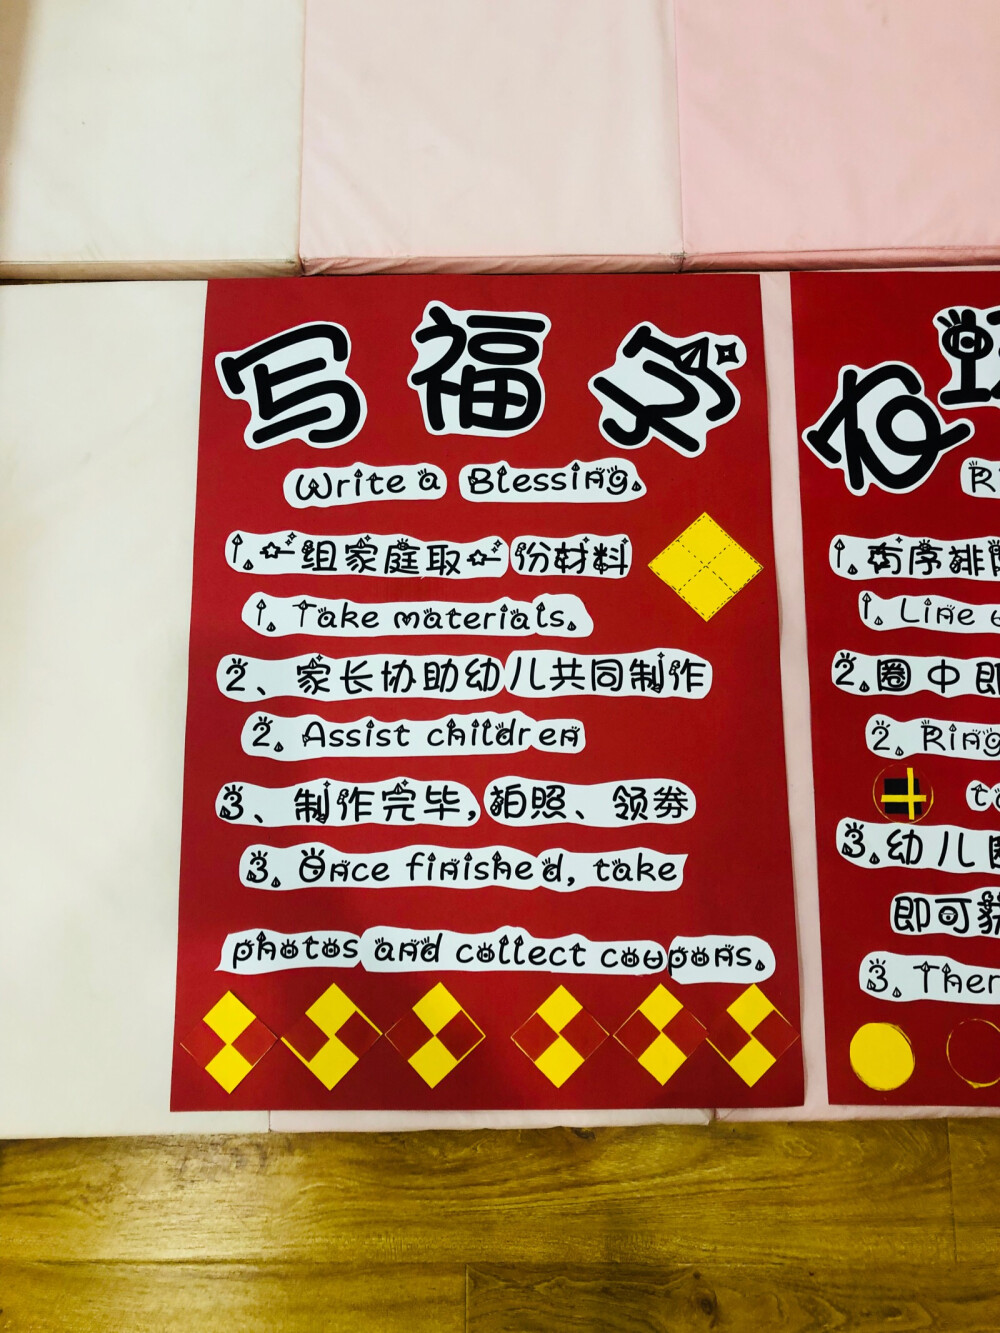 写福字
Write a Blessing.
1.一组家庭取一份材料
1. Take materials.
2、家长协助幼儿共同制作
2. Assist children
3、制作完毕,拍照、领劵
3. Once finished, take
photos and collect coupons.
1.有序排
1. Line
2.圈中即
2. Ring
3.幼儿
即可
3.